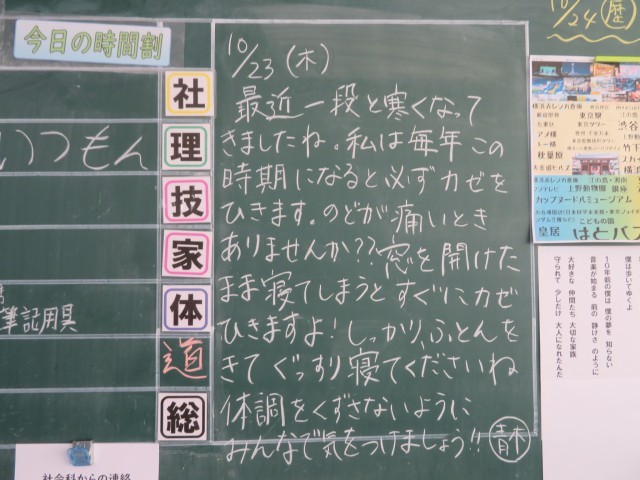 今日の時間割
社
理
技
家
体
道
総
いつもん
筆記用具
社会科からの連絡
10/23(木)
最近一段と寒くなって
きましたね。私は毎年この
時期になると必ずカゼを
ひきます。のどが痛いとき
ありませんか??窓を開けた
まま寝てしまうとすぐにカゼ
ひきますよ!しっかりふとんを
きてぐっすり寝てくださいね
体調をくずさないように
みんなで気をつけましょう!!青木
10/24(歴)
横浜赤レンガ倉庫
東京駅
東京タワー
アメ横
秋葉原
横浜赤レンガ倉庫
江の島・湘南
フジテレビ
上野動物園
銀座
カップヌードルミュージアム
こどもの国
皇居
はとバス
僕は歩いてゆくよ
10年前の僕は 僕の夢を 知らない
音楽が始まる 前の 静けさ のように
大好きな 仲間たち 大切な家族
守られて 少しだけ 大人になれたんだ